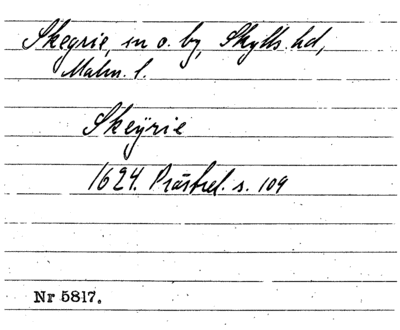 Skegrie, sn o. by, Skytts hd,
Malm. l.
Skeÿrie
1624. Prästrel. s. 109
Nr 5817.